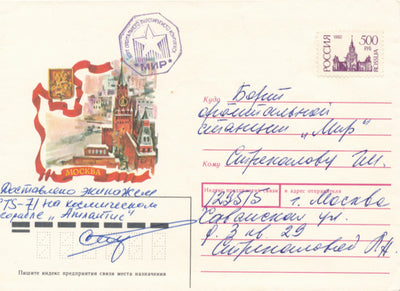 БОРТ ОРБИТАЛЬНОГО ПИЛОТИРУЕМОГО КОМПЛЕКСА
"МИР"
РОССИЯ
1992
500
РУБ
ROSSIJA
МОСКВА
Куда Борт
орбитальной
станции „Мир"
Кому Стрекалову Г.М.
Индекс предприятия связи и адрес отправителя
129515 г. Москва
ул.
д. 3 кв. 29
Стрекаловой
Доставлено экипажем
STS-71 на космическом
корабле „Атлантис"
Пишите индекс предприятия связи места назначения